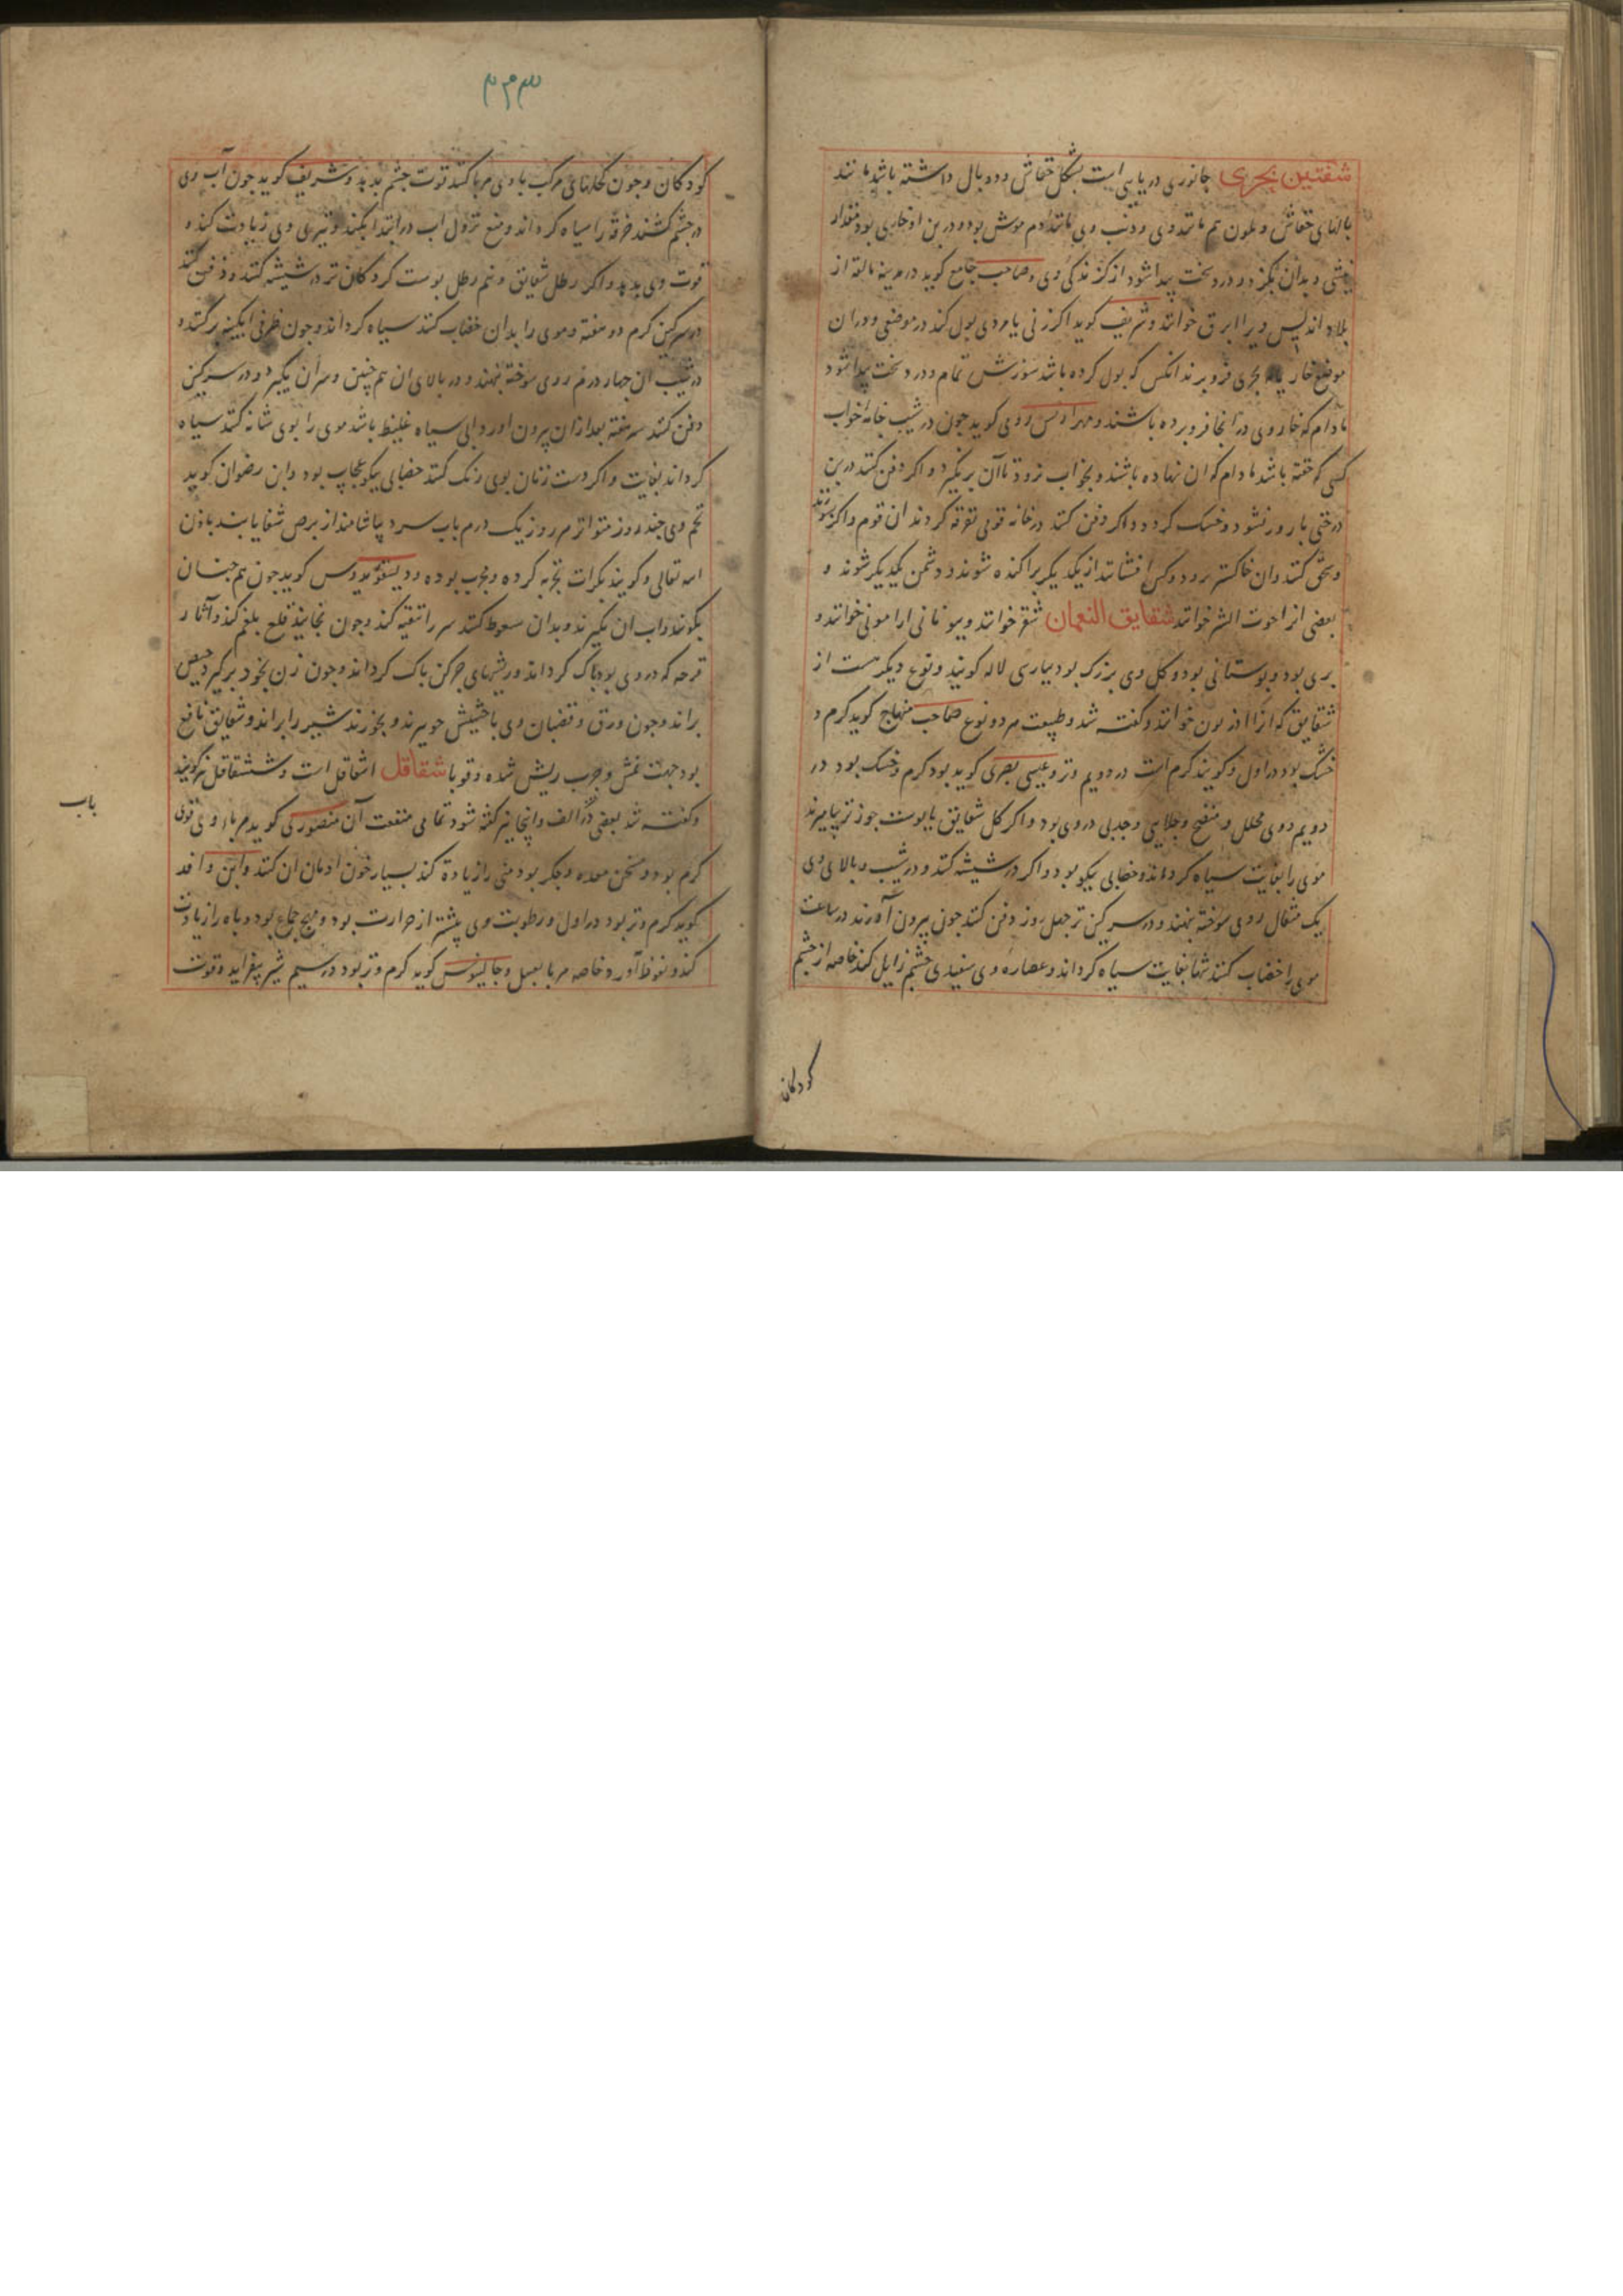 شفنین بحری جانوری دریایی است بشکل خفاش و دو بال داشته باشد مانند
بالهای خفاش و بلون هم مانند وی و ذنب وی مانند دم موش بود و در بن او خاری بود مقدار
نیشی و بدان بگزد و درد سخت پیدا شود از گزندگی وی و صاحب جامع کوید در مدینه مالقه از
بلاد اندلس ویرا ابرق خوانند و شریف کوید اکر زنی یا مردی بول کند در موضعی و در ان
موضع خار بحری فرو برند انکس که بول کرده باشد سوزش تمام و درد سخت پیدا شود
مادام که خار وی در انجا فرو برده باشند و مهراریس رومی کوید جون در شیب جامه خواب
کسی که خفته باشد مادام که ان نهاده باشند و بخواب نرود تا آن برنکیرد و اکر دفن کنند در بن
درختی بارور نشود و خشک کردد و اکر دفن کنند در خانه قومی تفرقه کردند ان قوم و اکر بسوزند
و سحق کنند وان خاکستر بر دو کس افشانند از یکدیکر پراکنده شوند و دشمن یکدیکر شوند و
بعضی انرا حوت الشر خوانند شقایق النعمان شقر خوانند و بیونانی ارامونی خوانند و
بری بود و بوستانی بود و کل وی بزرک بود بپارسی لاله کویند و نوع دیکر هست از
شقایق که انرا اذریون خوانند و کفته شد و طبیعت هر دو نوع صاحب منهاج کوید کرم و
خشک بود در اول و کویند کرم است در دویم و تر و عیسی بصری کوید بود کرم و خشک بود در
دویم و وی محلل و منضج و جلایی و جذبی در وی بود و اکر کل شقایق با پوست جوز تر بیامیزند
موی را بغایت سیاه کرداند و خضابی نیکو بود و اکر در شیشه کنند و در شیب و بالای وی
یک مثقال روی سوخته بنهند و در سرکین تر جهل روز دفن کنند جون بیرون آورند در ساعت
موی را خضاب کنند شها بغایت سیاه کرداند و عصاره وی سفیدی چشم زایل کند خاصه از چشم
کودکان
۳۲۳
کودکان و جون کحلهای مرکب با وی مربا کنند قوت جشم بدهد و شریف کوید جون آب وی
در جشم کشند حدقه را سیاه کرداند و منع نزول اب در ابتدا بکند و تیزی وی زیادت کند و
قوت وی بدهد و اکر رطل شقایق و نیم رطل پوست کردکان تر در شیشه کنند و دفن کنند
در سرکین کرم دو هفته و موی را بدان خضاب کنند سیاه کرداند و جون ظرفی ابکینه بر کنند و
در شیب ان جهار درم روی سوخته بنهند و در بالای ان هم چنین و سر ان بکیرد و در سرکین
دفن کنند سه هفته بعد ازان بیرون اورد ابی سیاه غلیظ باشد موی را بوی شانه کنند سیاه
کرداند بغایت و اکر دست زنان بوی رنک کنند خضابی نیکو عجایب بود و ابن رضوان کوید
تخم وی جند روز متواتر هر روز یک درم باب سرد بیاشامند از برص شفا یابند باذن
الله تعالی و کویند بکرات تجربه کرده و مجرب بوده و دیسقوریدوس کوید جون هم جنان
بکوبند و اب ان بکیرند و بدان سعوط کنند سر را تنقیه کند و جون بخایند قلع بلغم کند و آثار
قرحه که در وی بود پاک کرداند و ریشهای جرکن پاک کرداند و جون زن بخود برکیرد حیض
براند و جون ورق و قضبان وی با حشیش جو بپزند و بخورند شیر را براند و شقایق نافع
بود جهت نمش و جرب ریش شده و قوبا شقاقل اشقاقل است و ششقاقل نیز کویند
و کفته شد بعضی در الف و اینجا نیز کفته شود تمامی منفعت آن منصوری کوید مربا وی قوی
کرم بود و مسخن معده و جکر بود منی را زیادة کند بسیار خون ادمان ان کنند و ابن وافد
کوید کرم و تر بود در اول و رطوبت وی بیشتر از حرارت بود و مهیج جماع بود و باه را زیادت
کند و نعوظ آورد خاصه مربا بعسل و جالینوس کوید کرم و تر بود در سیم شیر بیفزاید و قوت
باب